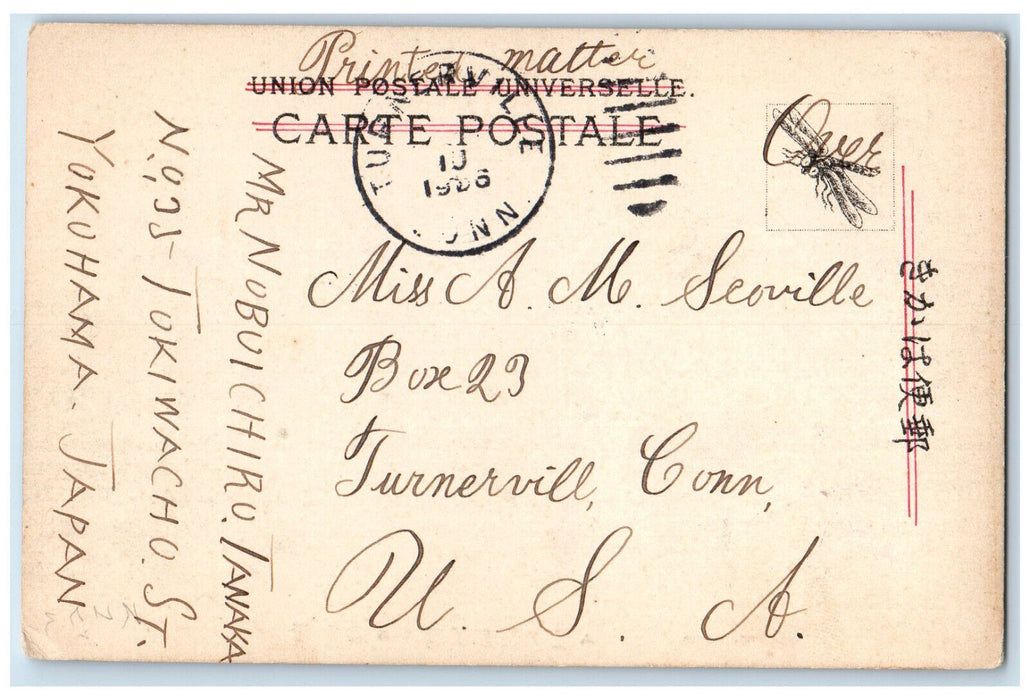 Printed matter
UNION POSTALE UNIVERSELLE.
CARTE POSTALE
Over
TURNERVILLE
10
1906
CONN.
きかは便郵
Miss A. M. Scoville
Box 23
Turnervill, Conn,
U. S. A.
MR NOBUICHIRO. TANAKA
TOKIWACHO. ST.
YOKOHAMA. JAPAN